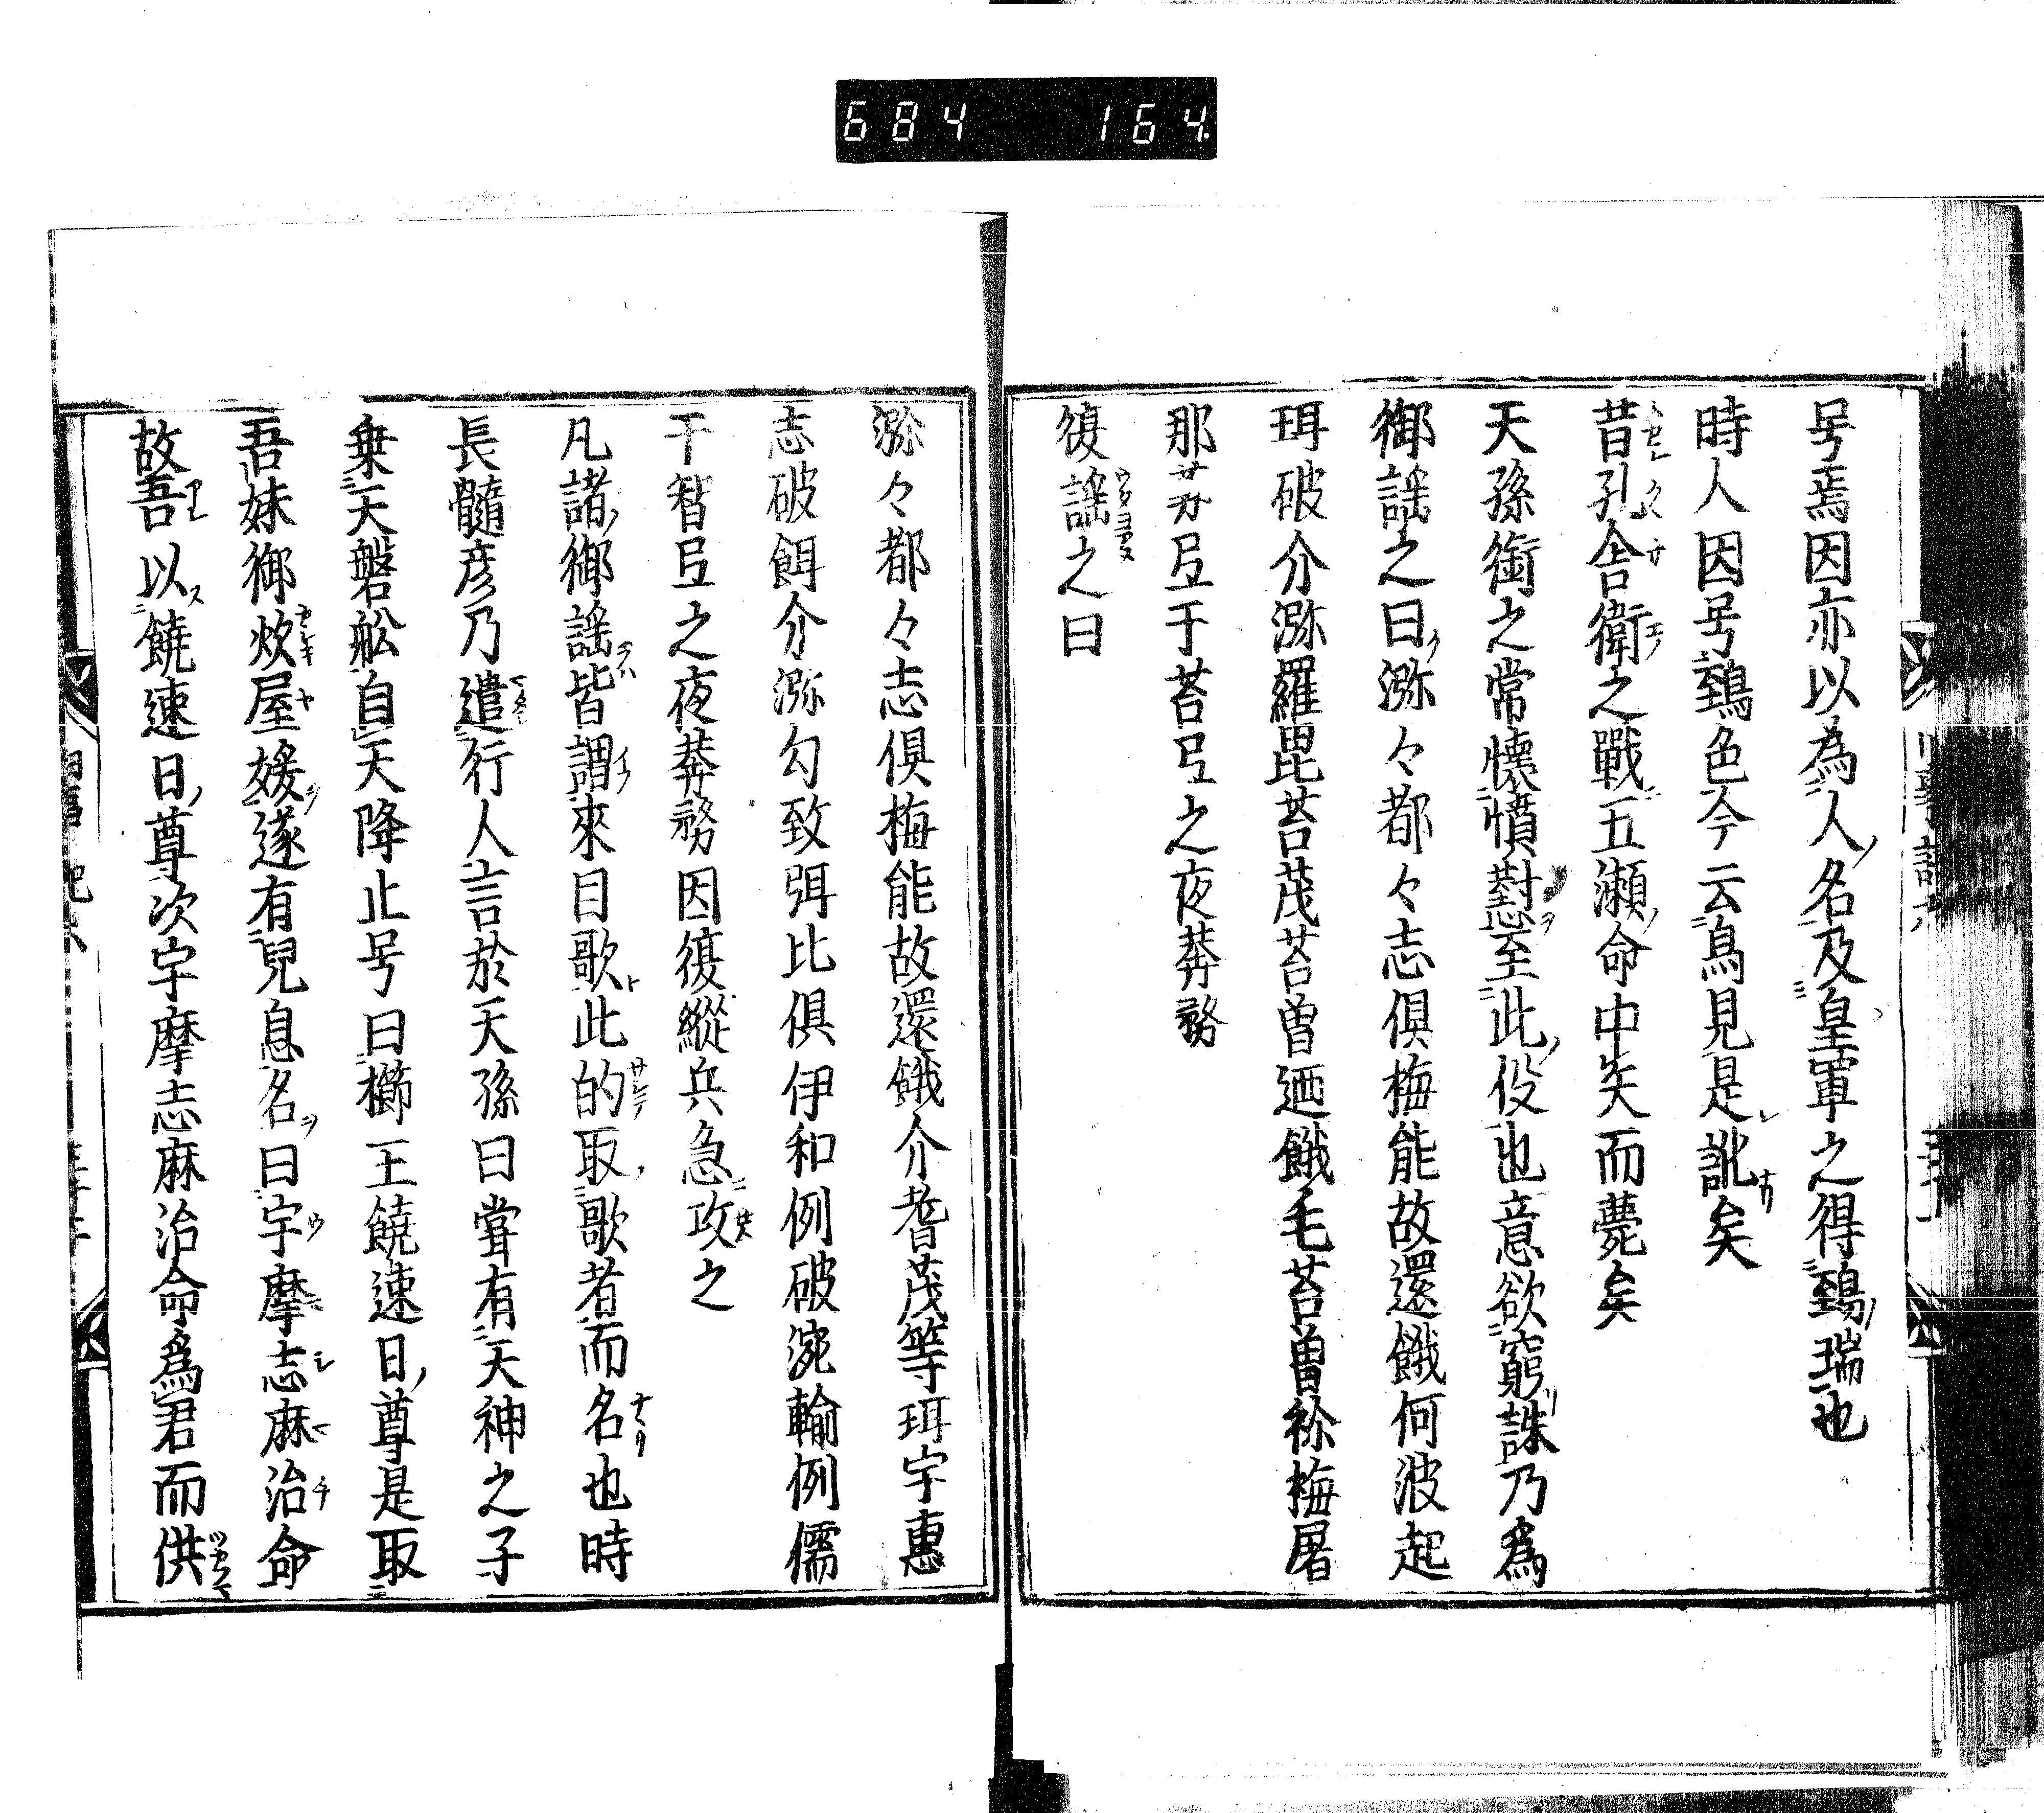 684 164.
号焉因亦以為人名及皇軍之得鵄瑞也
時人因号鵄色今云鳥見是訛矣
昔孔舎衛之戰五瀬命中矢而薨矣
天孫銜之常懐憤懟至此役也意欲窮誅乃為
御謡之曰瀰々都々志倶梅能故還餓何波起
珥破介瀰羅毘苔茂苔曽廼餓毛苔曽祢梅屠
那
弖于苔弖之夜莽務
復謡之曰
瀰々都々志倶梅能故還餓介耆茂等珥宇惠
志破餌介瀰勾致弭比倶伊和例破涴輸例儒
干智弖之夜莽務因復縱兵急攻之
凡諸御謡皆謂來目歌此的取歌者而名也時
長髓彦乃遣行人言於天孫曰嘗有天神之子
乗天磐舩自天降止号曰櫛玉饒速日尊是取
吾妹御炊屋媛遂有兒息名曰宇摩志麻治命
故吾以饒速日尊次宇摩志麻治命爲君而供